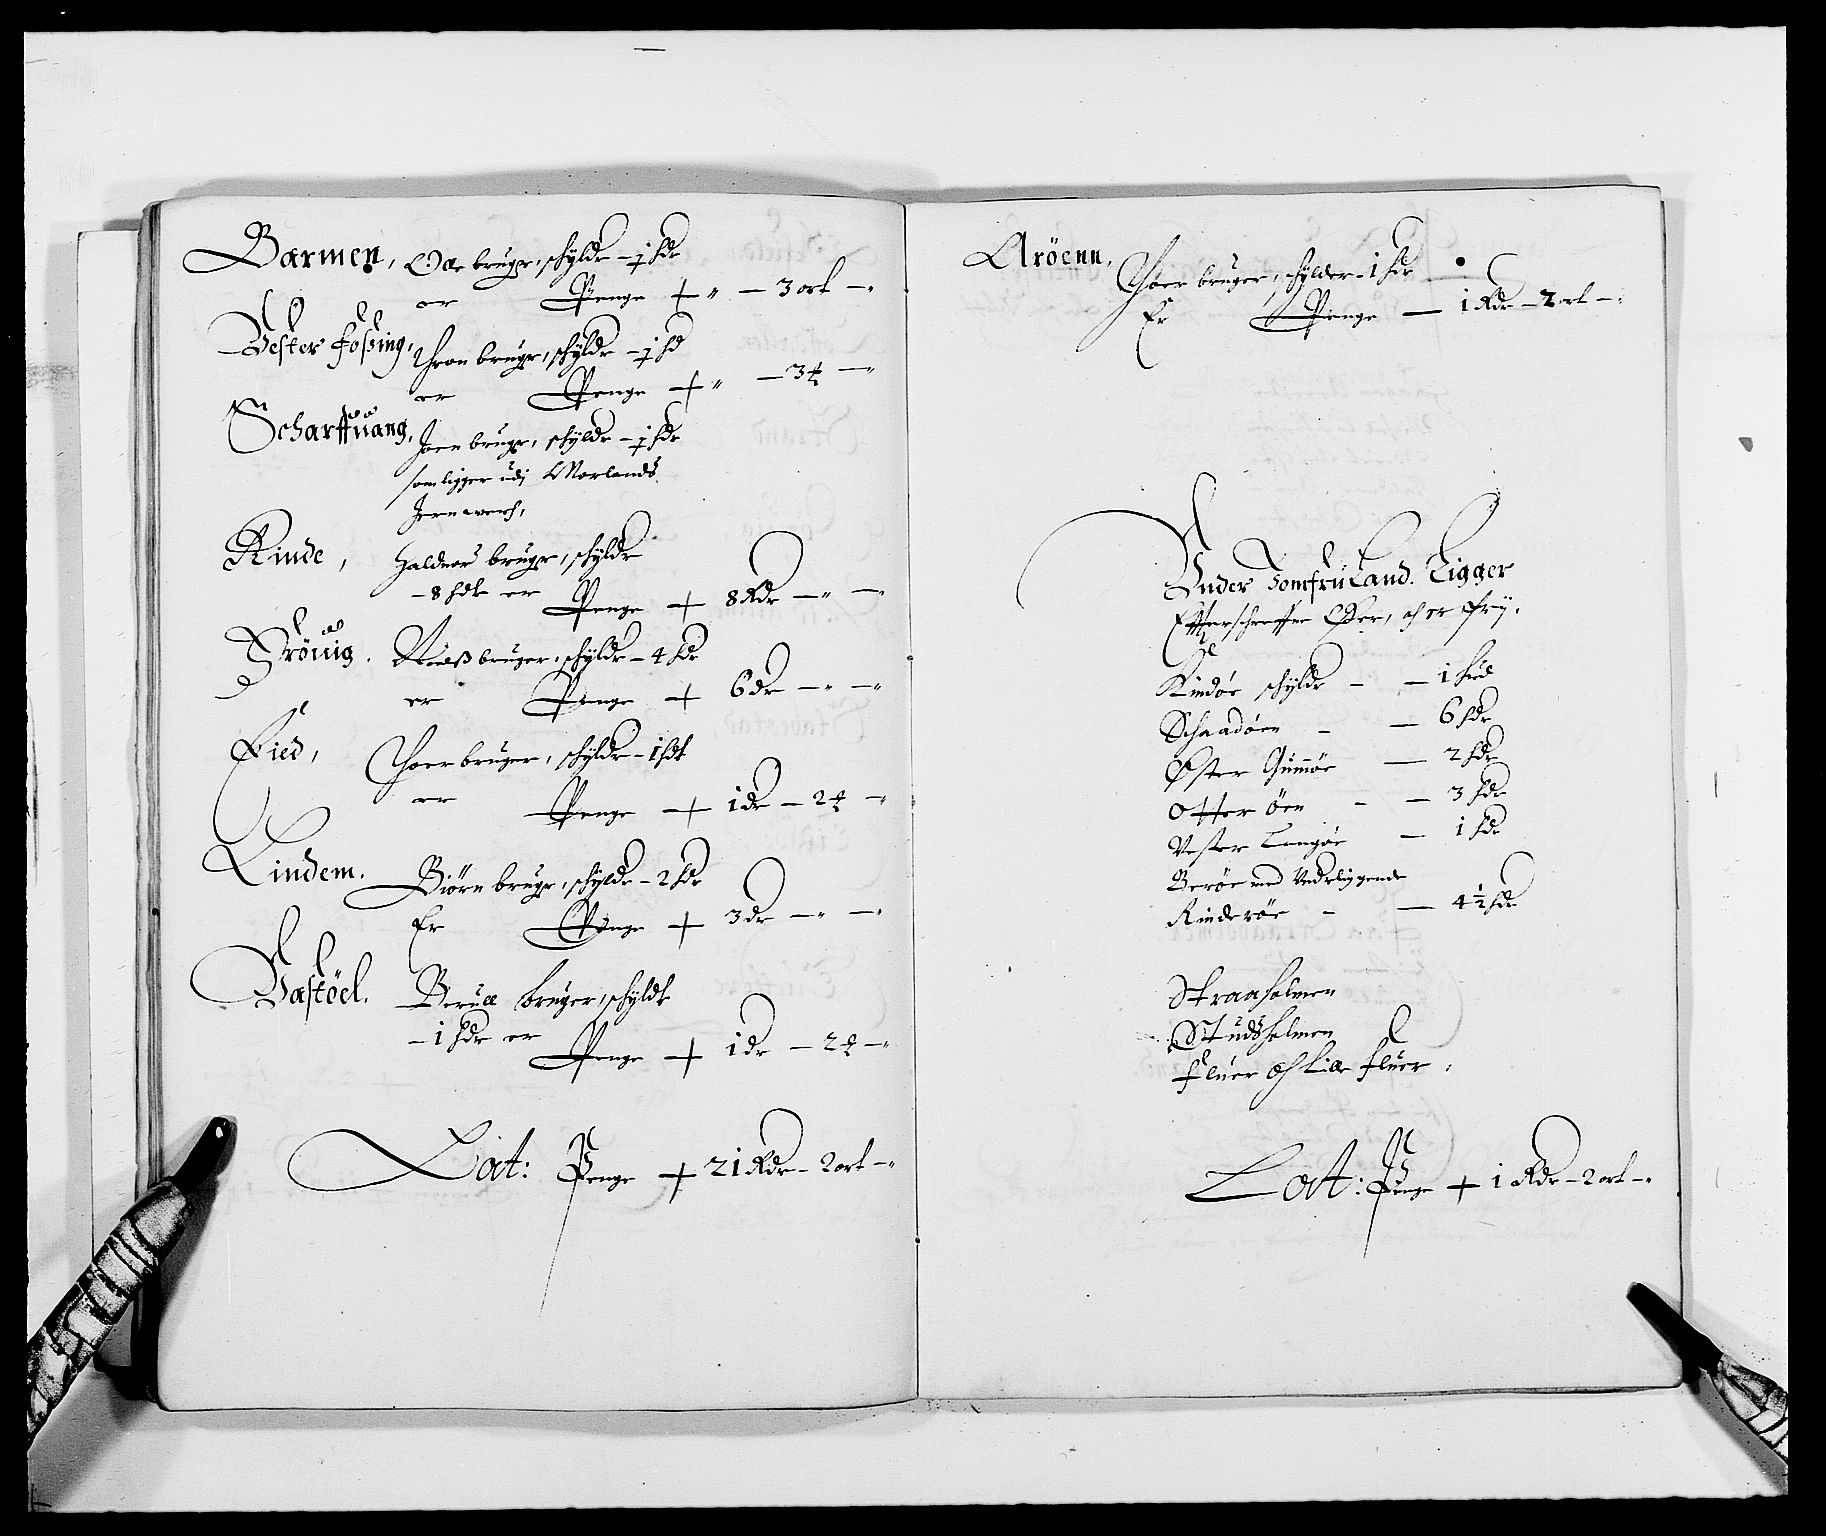 Barmen, Ole bruger, schylder – ½ hdr
er Penge + „ – 3 ort – „
Vester Fossing, Thron bruger, schylder – ½ hd
er Penge + „ – 3 ort – „
Scharffuang, Joen bruger, schylder – ½ hdr
som ligger udj Morlands
Jernwerch,
Rinde, Halduor bruger, schylder
– 8 hdr er Penge + 8 Rdr – „ – „
Tröuig. Nielß bruger, schylder – 4 hdr
er Penge + 6 dr – „ – „
Eied, Thoer bruger, schylder – 1 hdr
er Penge + 1 dr – 2 ort – „
Lindem. Biörn bruger, schylder – 2 hdr
Er Penge + 3 dr – „ – „
Vastöel. bruger, schylder
– 1 hdr er Penge + 1 dr – 2 ort – „
Lat: Penge + 21 Rdr – 2 ort – „
Aröenn, Thoer bruger, schylder – 1 hdr
Er Penge – 1 Rdr – 2 ort – „
Vnder Jomfruland. Ligger
Effterschreffne Öer, och er fry.
Kindöe schylder – – 1 hud
Schaadöen – – 6 hdr
Öster Gumöe – 2 hdr
Otter öen – – 3 hdr
Vester Langöe – 1 hdr
Beröe med Vnderliggende
Rinderöe – – 4½ hdr
Straaholmen
Studsholmen
Fluer och Lille Fluer,
Lat: Penge + 1 Rdr – 2 ort – „